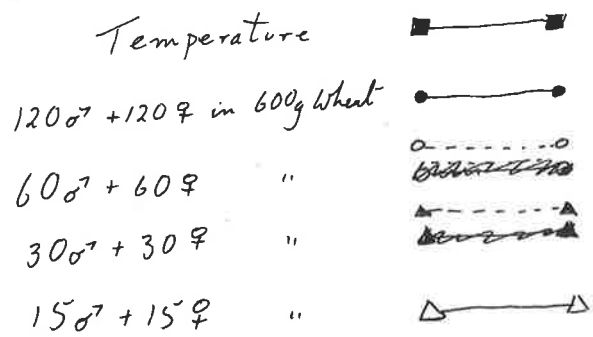 Temperature
120♂ + 120♀ in 600g Wheat
60♂ + 60♀ "
30♂ + 30♀ "
15♂ + 15♀ "